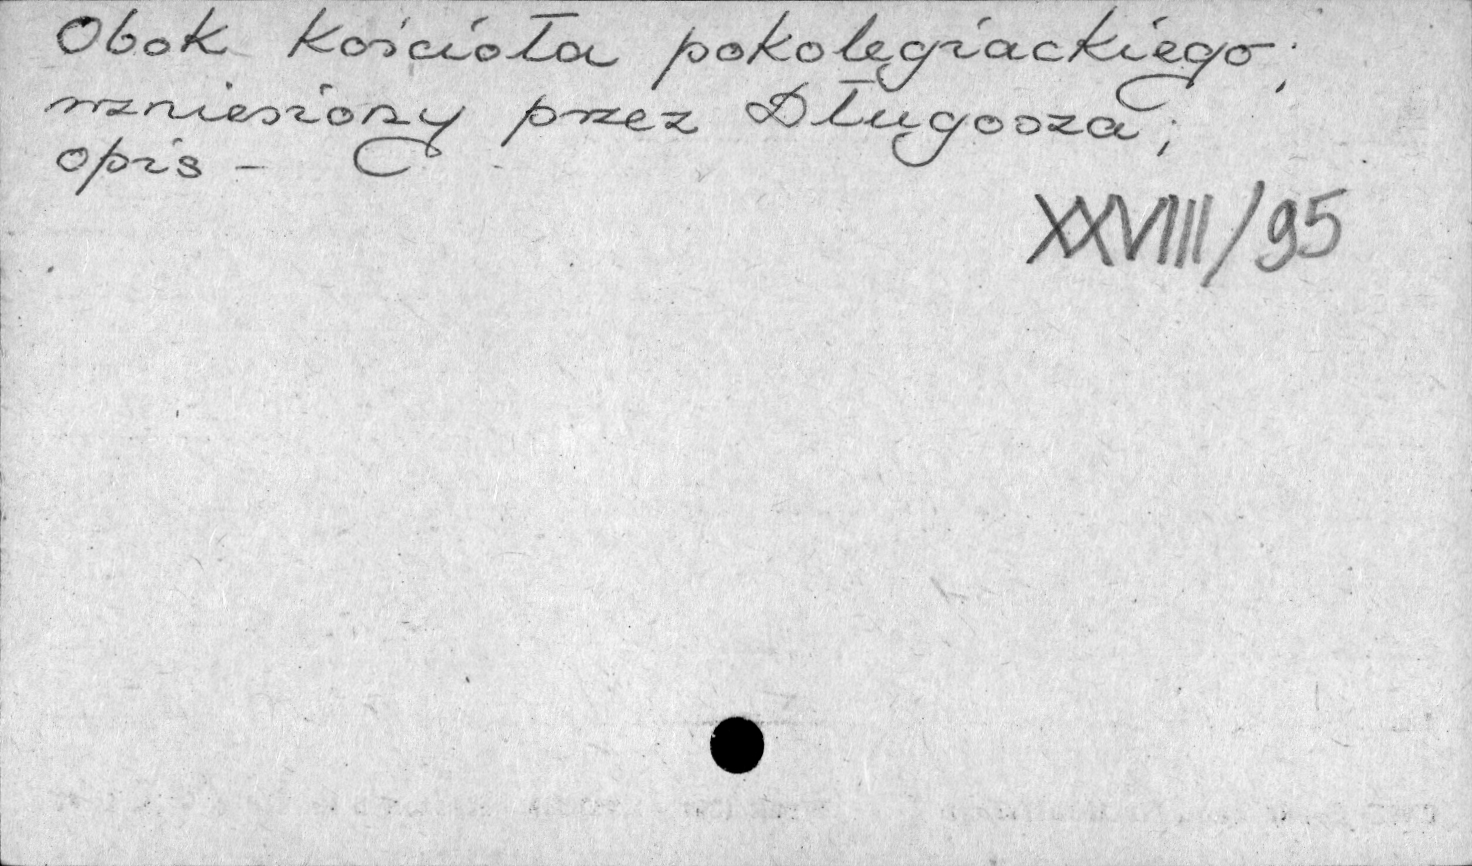 Obok kościoła pokolegiackiego,
wzniesiony przez Długosza;
opis -
XXVIII/95